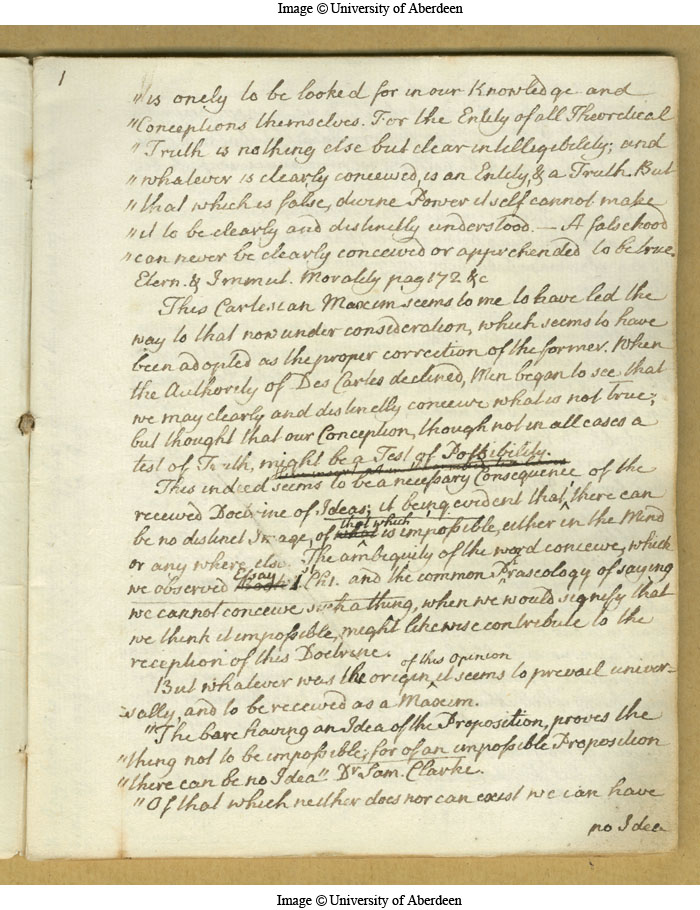 Image © University of Aberdeen
1
"is onely to be looked for in our Knowledge and
"Conceptions themselves. For the Entity of all Theoretical
"Truth is nothing else but clear intellegibility; and
"whatever is clearly conceived, is an Entity, & a Truth. But
"that which is false, divine Power itself cannot make
"it to be clearly and distinctly understood. — A falsehood
"can never be clearly conceived or apprehended to be true.
Etern. & Immut. Morality pag 172 &c
This Cartesian Maxim seems to me to have led the
way to that now under consideration, which seems to have
been adopted as the proper correction of the former. When
the Authority of Des Cartes declined, Men began to see that
we may clearly and distinctly conceive what is not true;
but thought that our Conception, though not in all cases a
test of Truth, might be a Test of Possibility.
This indeed seems to be a necessary Consequence of the
received Doctrine of Ideas; it being evident that there can
be no distinct Image, of that which is impossible, either in the Mind
or any where else. The ambiguity of the word conceive, which
we observed Essay 1 Ch1. and the common Phraseology of saying
we cannot conceive such a thing, when we would signify that
we think it impossible, might likewise contribute to the
reception of this Doctrine.
But whatever was the origin of this Opinion it seems to prevail univer-
sally, and to be received as a Maxim.
"The bare having an Idea of the Proposition, proves the
"thing not to be impossible; for of an impossible Proposition
"there can be no Idea" Dr Sam. Clarke.
"Of that which neither does nor can exist we can have
no Idea
Image © University of Aberdeen